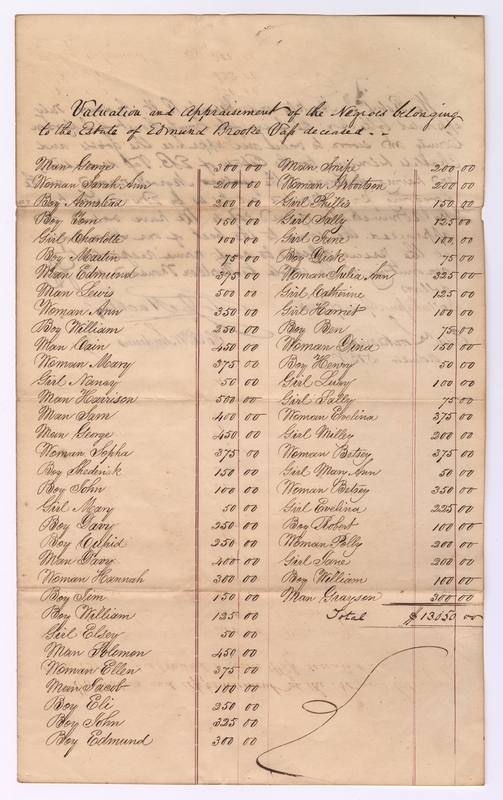 Valuation and Appraisement of the Negroes belonging
to the Estate of Edmund Brooke deceased
Man George 300 00
Woman Sarah Ann 200 00
Boy Armstead 200 00
Boy Tom 150 00
Girl Charlotte 100 00
Boy Martin 75 00
Man Edmund 375 00
Man Lewis 500 00
Woman Ann 350 00
Boy William 250 00
Man Cain 450 00
Woman Mary 375 00
Girl Nancy 50 00
Man Harrison 500 00
Man Sam 400 00
Man George 450 00
Woman Sopha 375 00
Boy Shederick 150 00
Boy John 100 00
Girl Mary 50 00
Boy Davy 250 00
Boy Cupid 250 00
Man Davy 400 00
Woman Hannah 300 00
Boy Jim 150 00
Boy William 125 00
Girl Elsey 50 00
Man Solomon 450 00
Woman Ellen 375 00
Man Jacob 100 00
Boy Eli 250 00
Boy John 325 00
Boy Edmund 300 00
Man Snipe 200 00
Woman 200 00
Girl Phillis 150 00
Girl Sally 125 00
Girl Jane 100 00
Boy Dick 75 00
Woman Julia Ann 325 00
Girl Catherine 125 00
Girl Harriet 100 00
Boy Ben 75 00
Woman 150 00
Boy Henry 50 00
Girl Lucy 100 00
Girl Sally 75 00
Woman Evelina 375 00
Girl Milley 200 00
Woman Betsey 375 00
Girl Mary Ann 50 00
Woman Betsey 350 00
Girl Evelina 225 00
Boy Robert 100 00
Woman Polly 200 00
Girl Jane 200 00
Boy William 100 00
Man Grayson 300 00
Total 00